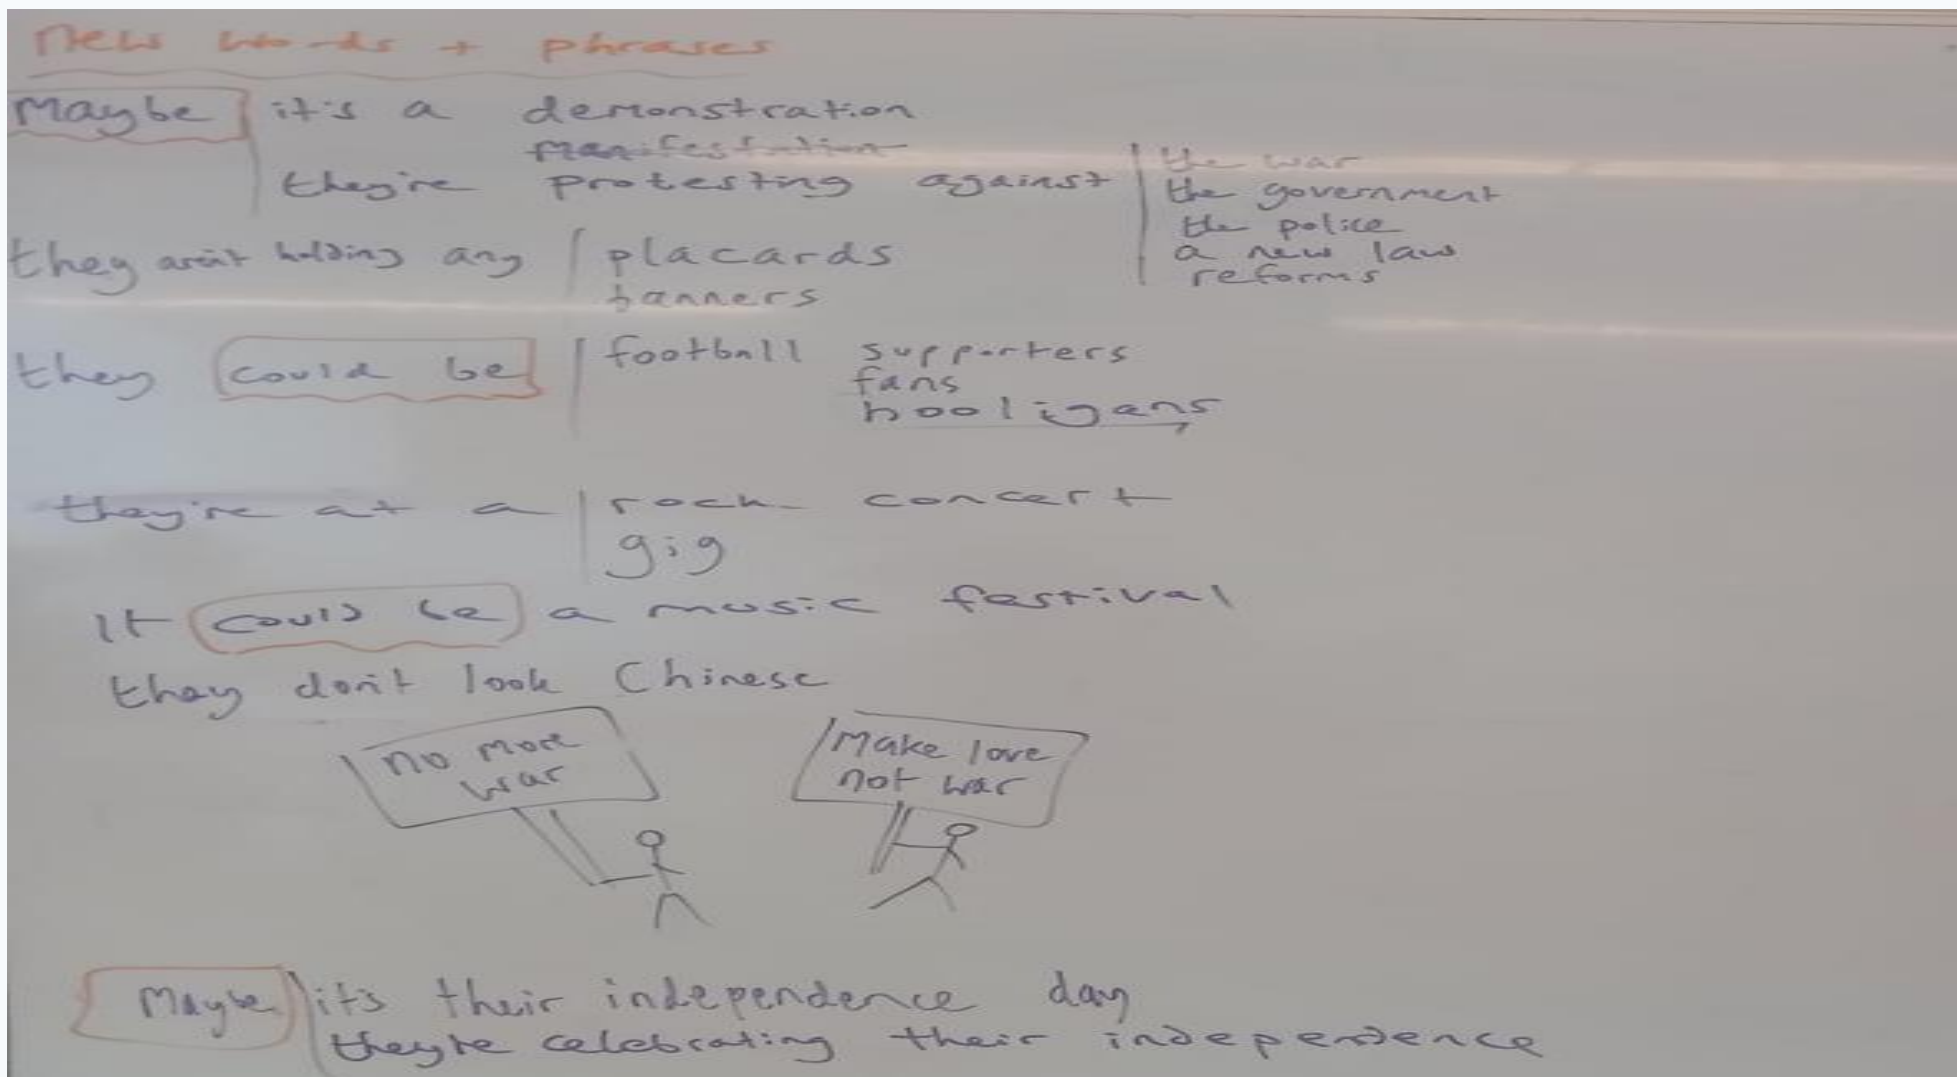 new words + phrases
Maybe it's a demonstration
manifestation
they're protesting against
the war
the government
the police
a new law
reforms
they aren't holding any placards
banners
they could be football supporters
fans
hooligans
they're at a rock concert
gig
It could be a music festival
they don't look Chinese
no more
war
Make love
not war
Maybe it's their independence day
they're celebrating their independence